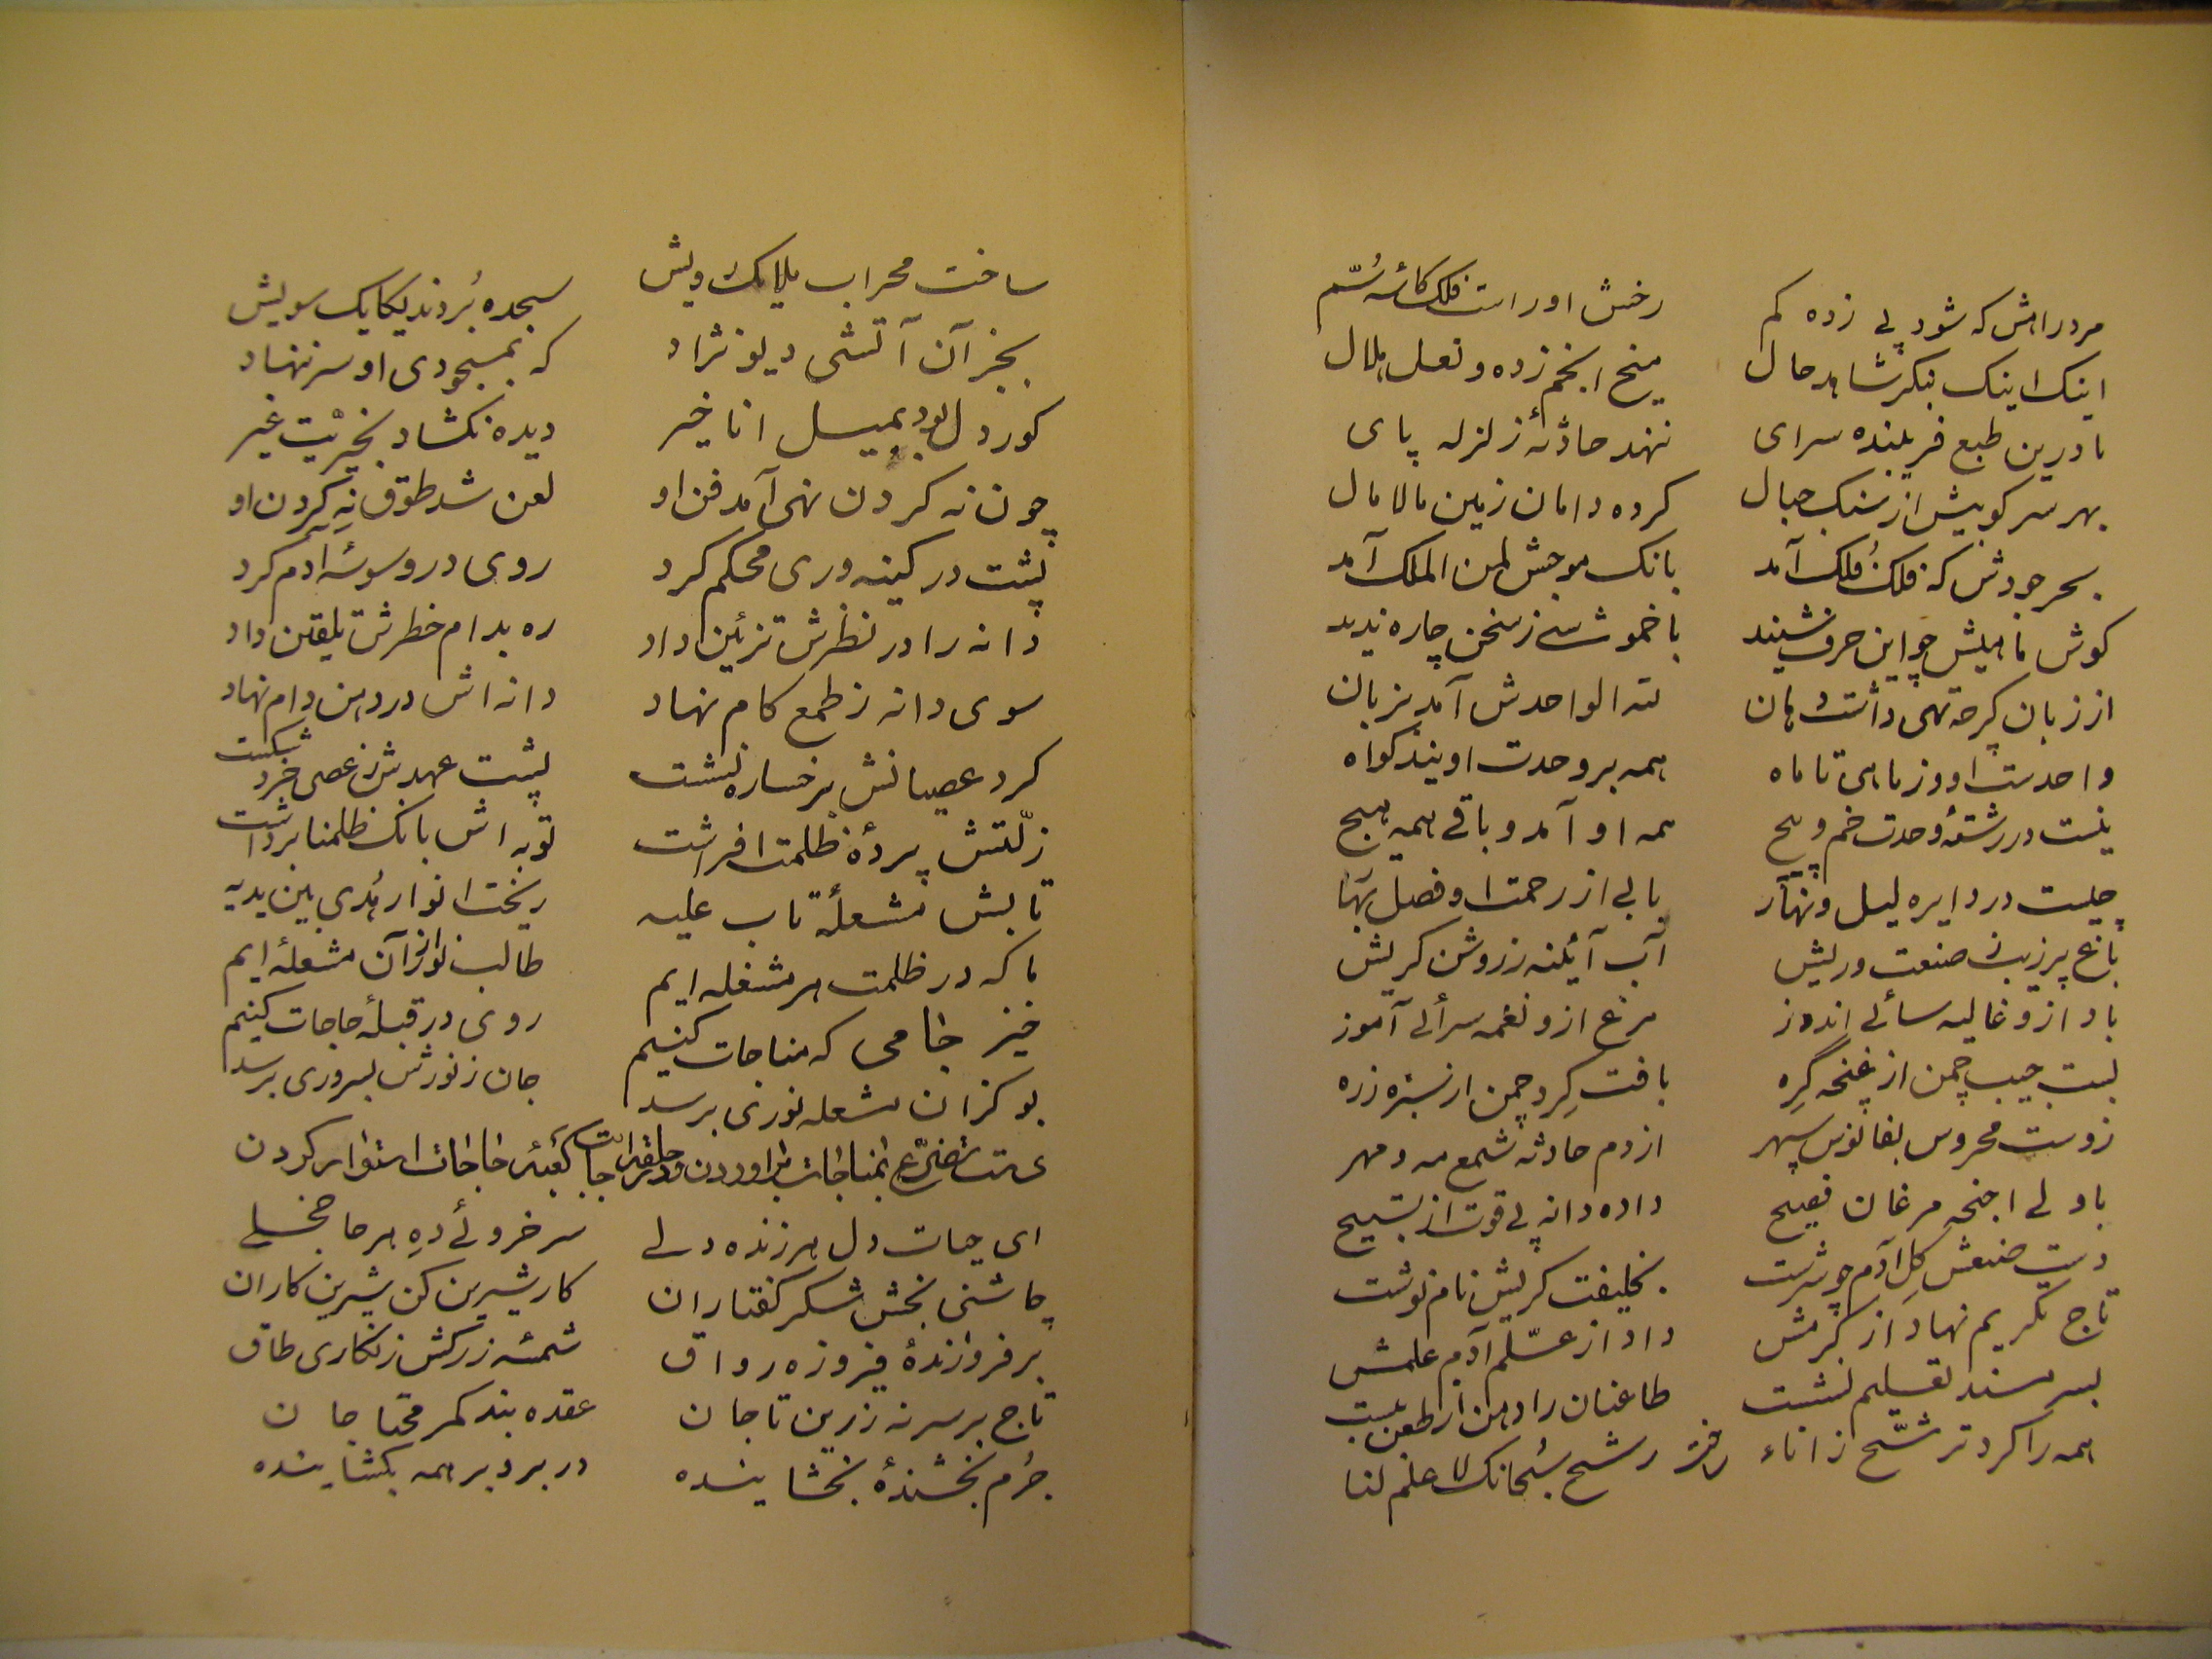 مرد راهش که شود پی زده کم رخش او راست فلک کاسهٔ سُم
اینک اینک بنکر شاهد حال میخ انجم زده و نعل هلال
تا درین طبع فریبنده سرای ننهد حادثهٔ زلزله پای
بهر سر کوبیش از سنک جبال کرده دامان زمین مالامال
بحر جودش که فلک فُلک آمد بانک موجش لمن الملک آمد
کوش ماهیش چو این حرف شنید با خموشی ز سخن چاره ندید
از زبان کرچه تهی داشت دهان لله الواحدش آمد بزبان
واحدست او و ز ماهی تا ماه همه بر وحدت اویند کواه
نیست در رشتهٔ وحدت خم و پیچ همه او آمد و باقی همه هیچ
چیست در دایره لیل و نهار بابی از رحمت او فصل بهار
باغ پر زیب ز صنعت وریش آب آئینه ز روشن کریش
باد ازو غالیه سائی اندوز مرغ ازو نغمه سرائی آموز
بست جیب چمن از غنچه گِرِه بافت کِرد چمن از سبزه زره
زوست محروس بفانوس سپهر از دم حادثه شمع مه و مهر
باد لی اجنحه مرغان فصیح داده دانه پی قوت از تسبیح
دست صنعش کِل آدم چو سرشت بخلیفت کریش نام نوشت
تاج تکریم نهاد از کرمش داد از عَلّم آدم علمش
بسر مسند تعلیم نشست طاعنان را دهن از طعن ببست
همه را کرد ترشّح ز اناء رشح سُبحانک لا علم لنا
ساخت محراب ملایک رویش سجده بُردند یکایک سویش
بجز آن آتشی دیو نژاد که بمسجودی او سر ننهاد
کور دل بود بمیل انا خیر دیده نکشاد بخیریّت غیر
چون نه کردن نهی آمد فن او لعن شد طوق نهِ کردن او
پشت در کینه وری محکم کرد روی در وسوسهٔ ادم کرد
دانه را در نظرش تزئین داد ره بدام خطرش تلقین داد
سوی دانه ز طمع کام نهاد دانه اش در دهن دام نهاد
کرد عصیانش بر خساره نشست پشت عهدش ز عصی خرد شکست
زلّتش پردهٔ ظلمت افراشت توبه اش بانک ظلمنا برداشت
تابش مشعلهٔ تاب علیه ریخت انوار هُدی بین یدیه
ما که در ظلمت هر مشغله ایم طالب نور از آن مشعلهٔ ایم
خیز جامی که مناجات کنیم روی در قبلهٔ حاجات کنیم
بو کزان شعله نوری برسد جان ز نورش بسروری برسد
دست تضرّع بمناجات براوردن و حلقه بر در کعبهٔ حاجات استوار کردن
ای حیات دل هر زنده دلی سرخروئی دهِ هر جا خجلی
چاشنی بخش شکر کفتاران کار شیرین کن شیرین کاران
بر فروزندهٔ فیروزه رواق شمسهٔ زرکش زنکاری طاق
تاج بر سر نه زرین تاجان عقده بند کمر محتاجان
جرُم بخشندهٔ بخشاینده در بر دبر همه بکشاینده